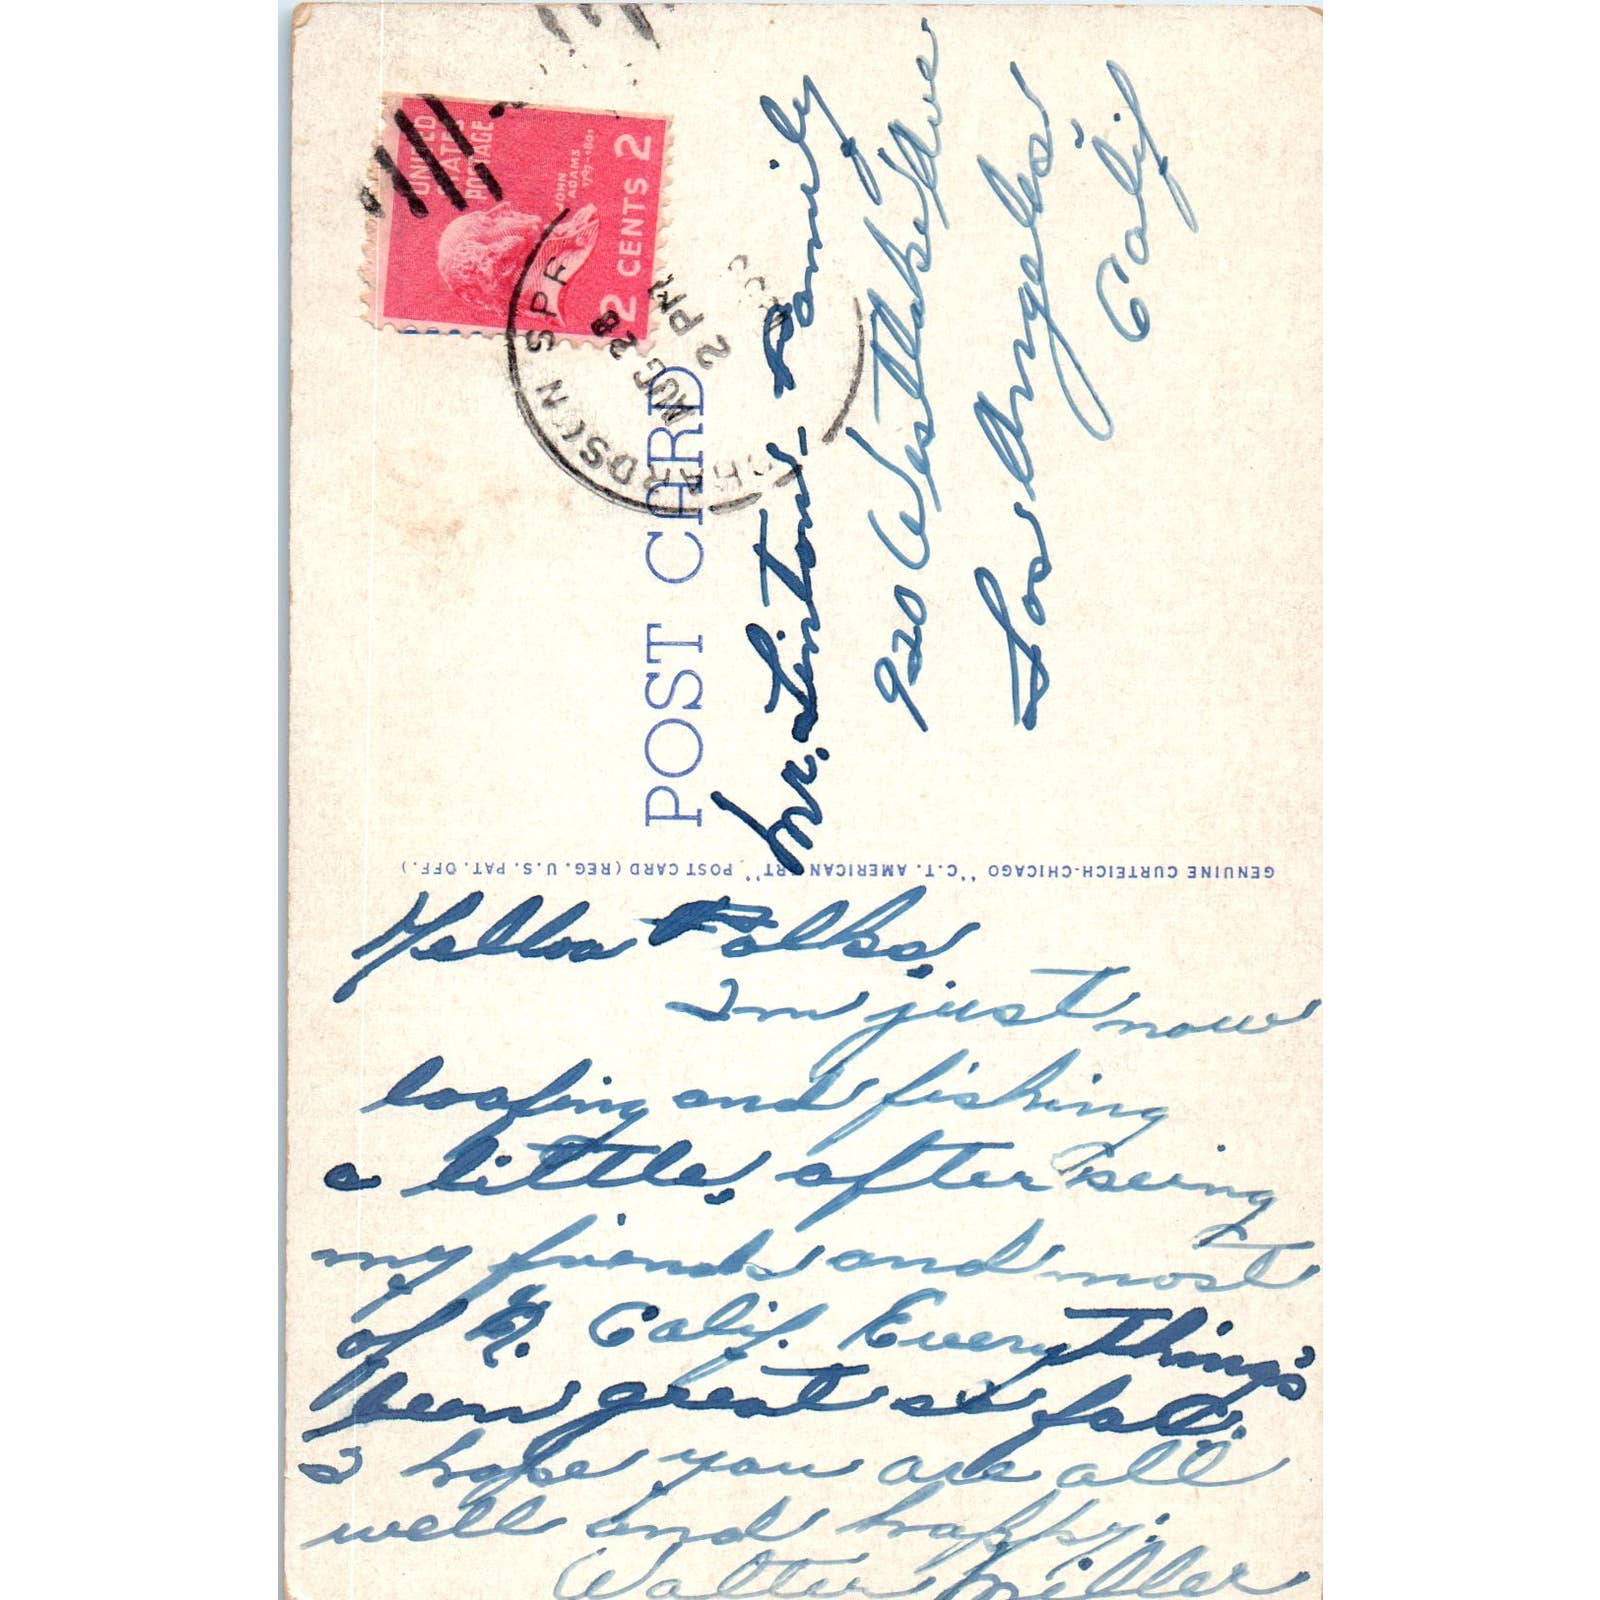 UNITED
STATES
POSTAGE
JOHN
ADAMS
1797-1801
2 CENTS 2
AUG 28
2 PM
POST CARD
Mr. Linton - Family
920 Westlake Ave
Los Angeles
Calif
GENUINE CURTEICH-CHICAGO "C.T. AMERICAN ART" POST CARD (REG. U.S. PAT. OFF.)
Hellow Folks.
Im just now
loafing and fishing
a little, after seeing
my friends and most
of N. Calif. Everything's
been great so far.
I hope you are all
well and happy.
Walter Miller